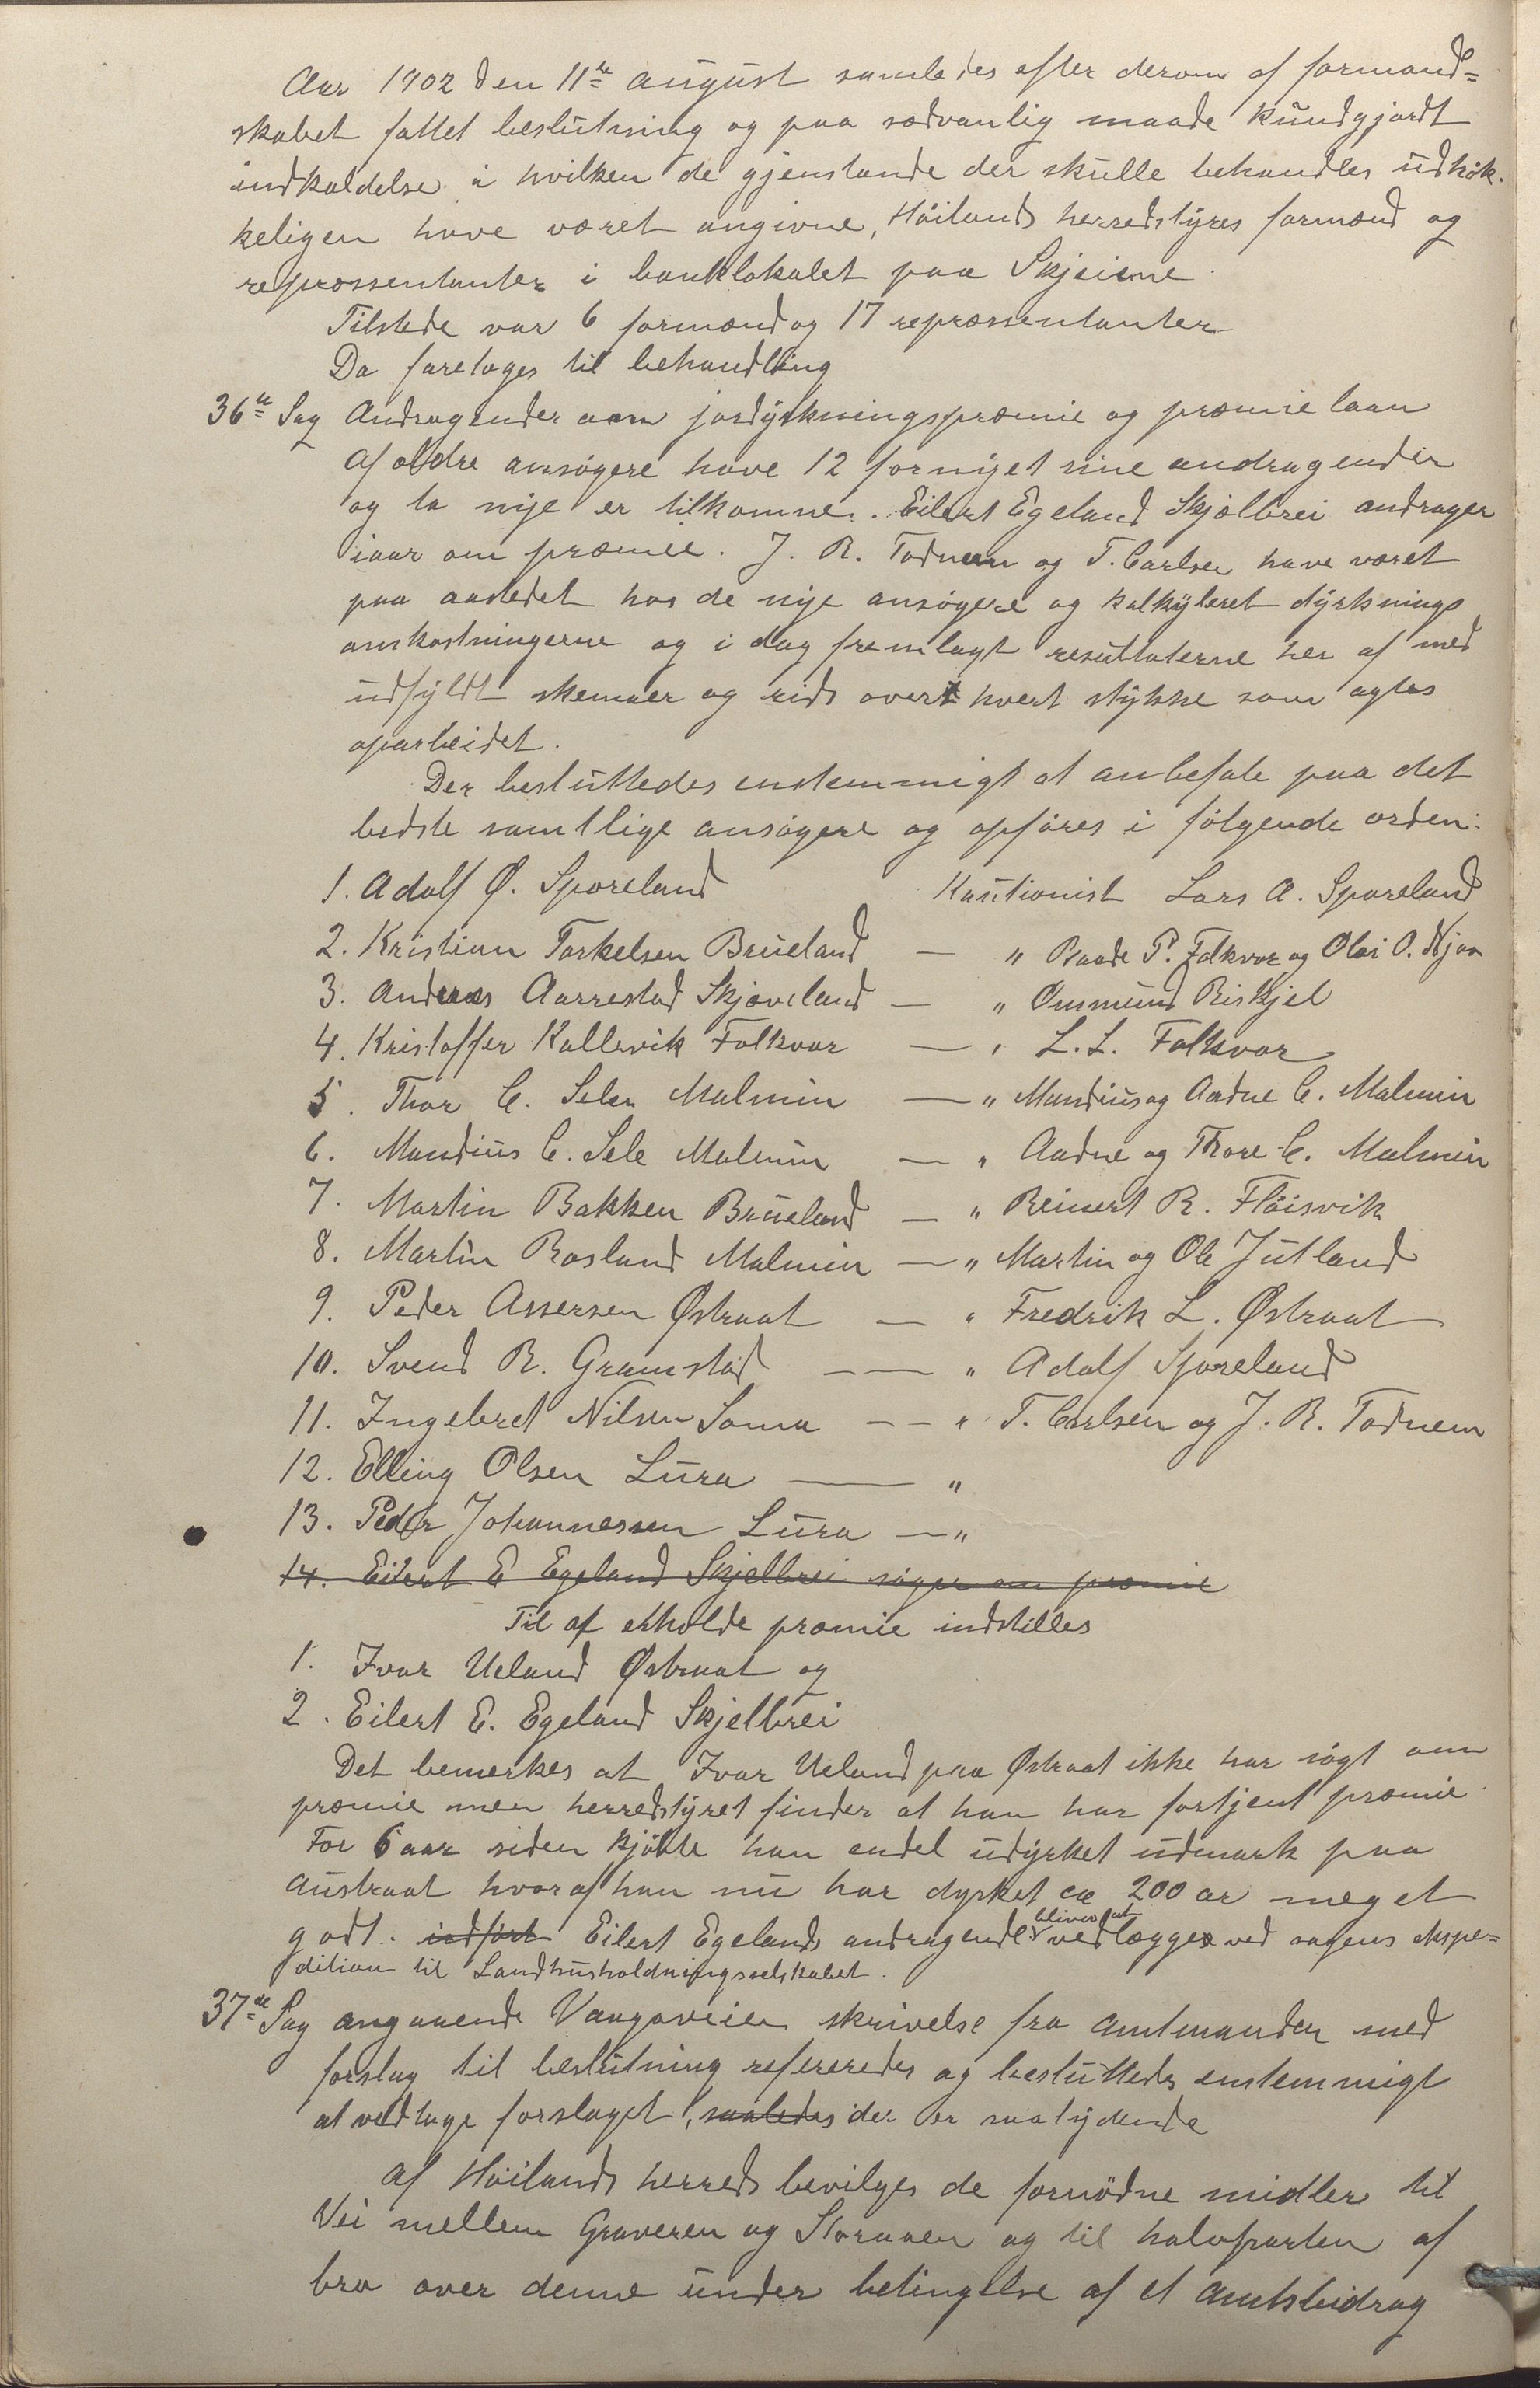 Aar 1902 den 11te august samledes efter derom af formand=
skabet fattet beslutning og paa sædvanlig maade kundgjordt
indkaldelse i hvilken de gjenstande der skulle behandles udtrök-
keligen have været angivne, Höilands herredstyres formænd og
repræssentanter i banklokalet paa Skjeiene.
Tilstede var 6 formænd og 17 repræssentanter
Da foretoges til behandling
36te Sag Andragender om jordyrkningspræmie og præmielaan
Af ældre ansögere have 12 fornyet sine andragender
og to nye er tilkomne. Eilert Egeland Skjælbrei andrager
iaar om præmie. J. R. Todnem og T. Carlsen have været
paa aastedet hos de nye ansögere og kalkyleret dyrknings
omkostningerne og i dag fremlagt resultaterne her af med
udfyldt skemaer og rids over hvert stykke som agtes
oparbeidet.
Der besluttedes enstemmigt at anbefale paa det
bedste samtlige ansögere og opföres i fölgende orden:
1. Adolf Ø. Sporeland Kautionist Lars A. Sporeland
2. Kristian Torkelsen Brueland — " Baade P. Folkvor og Olai O. Njaa
3. Andreas Aarrestad Skjæveland — " Ommund Riskjel
4. Kristoffer Kallevik Folkvor — " L. L. Folkvor
5. Thor C. Sele Malmin — " Mandius og Aadne C. Malmin
6. Mandius C. Sele Malmin — " Aadne og Thore C. Malmin
7. Martin Bakken Brueland — " Reinert R. Flöisvik
8. Martin Rosland Malmin — " Martin og Ole Jutland
9. Peder Assersen Østraat — " Fredrik L. Østraat
10. Svend R. Gramstad — — " Adolf Sporeland
11. Ingebret Nilsen Soma — — " T. Carlsen og J. R. Todnem
12. Elling Olsen Lura — "
13. Peder Johannessen Lura — "
14. Eilert E Egeland Skjelbrei söger om præmie
Til at erholde præmie indstilles
1. Ivar Ueland Østraat og
2. Eilert E. Egeland Skjelbrei
Det bemerkes at Ivar Ueland paa Østraat ikke har sögt om
præmie men herredstyret finder at han har fortjent præmie.
For 6 aar siden kjöbte han endel udyrket udmark paa
Austraat hvoraf han nu har dyrket ca 200 ar meget
godt. indført Eilert Egelands andragende bliver at vedlægges ved sagens ekspe=
dition til Landhusholdningsselskabet.
37de Sag angaaende Vaagaveien skrivelse fra amtmanden med
forslag til beslutning refereredes og besluttedes enstemmigt
at vedtage forslaget, saaledes der er saalydende
Af Höilands herred bevilges de fornödne midler til
Vei mellem Graveren og Storaaen og til halvparten af
bro over denne under betingelse af et Amtsbidrag